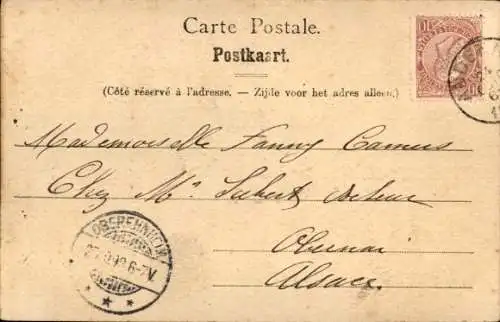 Carte Postale.
Postkaart.
(Côté réservé à l'adresse. — Zijde voor het adres alleen.)
Mademoiselle Fanny Camus
Chez Mr.
Obernai
Alsace.
OBEREHNHEIM
10